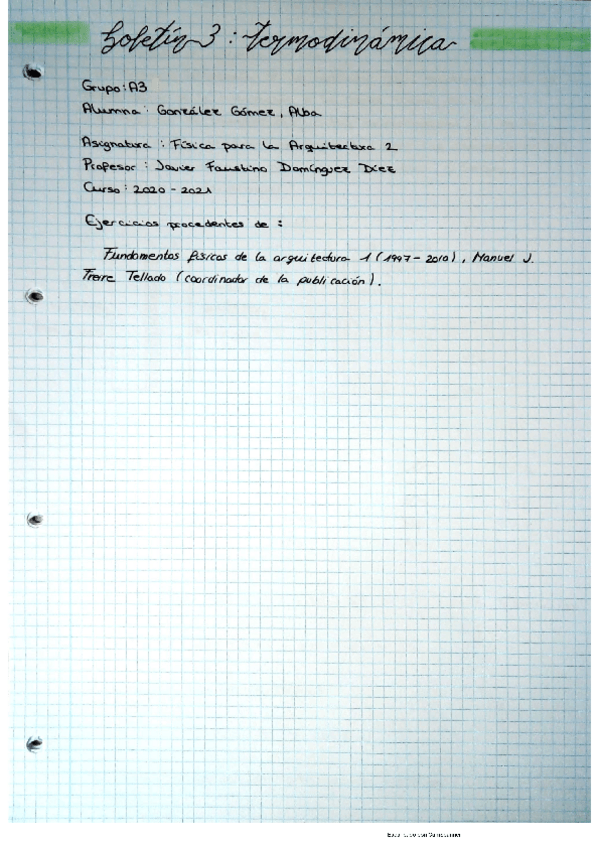 Boletín 3: Termodinámica
Grupo: A3
Alumna: González Gómez, Alba
Asignatura: Física para la Arquitectura 2
Profesor: Javier Faustino Domínguez Díez
Curso: 2020-2021
Ejercicios procedentes de:
Fundamentos físicos de la arquitectura 1 (1997-2010), Manuel J.
Freire Tellado (coordinador de la publicación).